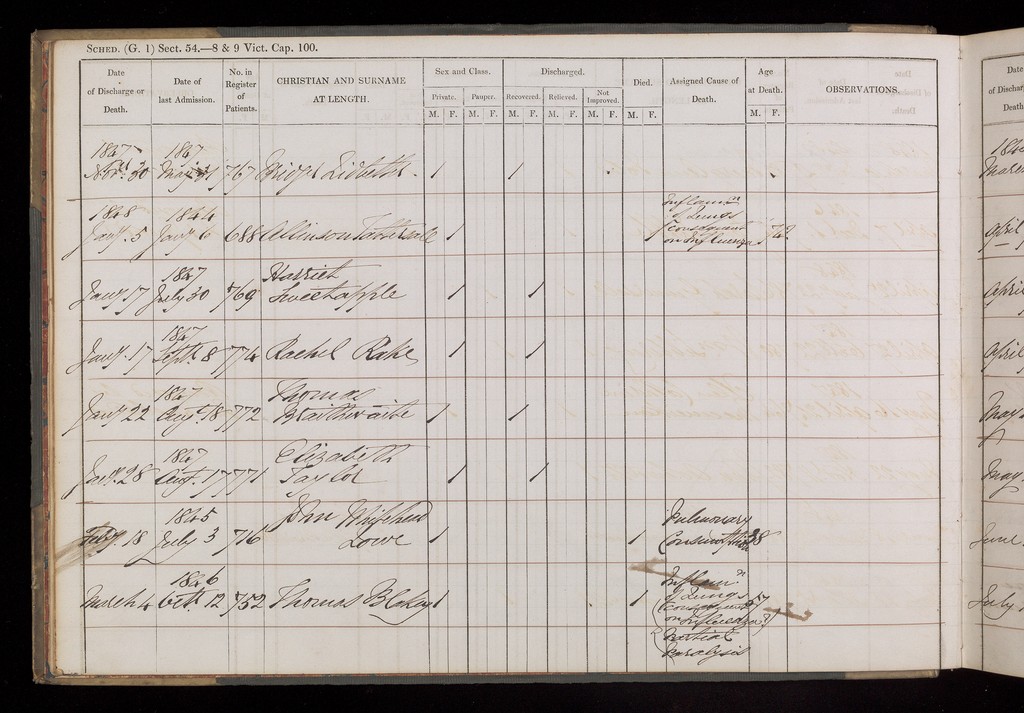 SCHED. (G. 1) Sect. 54.—8 & 9 Vict. Cap. 100.
Date of Discharge or Death.
Date of last Admission.
No. in Register of Patients.
CHRISTIAN AND SURNAME AT LENGTH.
Sex and Class.
Discharged.
Died.
Assigned Cause of Death.
Age at Death.
OBSERVATIONS.
Private. Pauper. Recovered. Relieved. Not Improved.
M. F. M. F. M. F. M. F. M. F. M. F. M. F.
1847 1847
Novr. 30 May 31 767 Lidbetter 1 1
1848 1844 Inflamn
of Lungs
Jany. 5 Jany. 6 688 Allinson 1 1 consequent
on Influenza
1847 Harriet
Jany 17 July 30 769 Sweetapple 1 1
1847
Jany. 17 Septr. 8 774 Rachel Rake 1 1
1847 Thomas
Jany 22 Augt. 18 772 Braithwaite 1 1
1847 Elizabeth
Jany. 28 Augt. 17 771 Taylor 1 1
1845 John Whitehead Pulmonary
Feby. 18 July 3 716 Lowe 1 1 Consumption 38
1846 Inflamn
of Lungs
March 4 Octr. 12 752 Thomas Blakay 1 1 (consequent 57
on Influenza?)
Partial
Paralysis
Date
of Discharge
Death
March
April
April
April
May
May
June
July